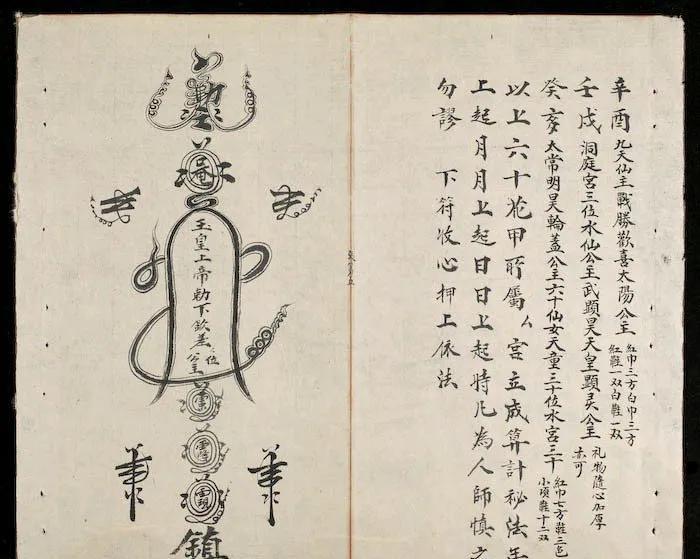 辛酉 九天仙主戰勝歡喜太陽公主 紅巾三方白巾三方
紅鞋一双白鞋一双
壬戌 洞庭宮三位水仙公主武顕昊天皇顕灵公主 礼物隨心加厚
亦可
癸亥 太常明昊輪蓋公主六十仙女天童三十位水宮三十 紅巾七方鞋三色
小項鞋十二双
以上六十花甲所屬 宮立成算計秘法年
上起月月上起日日上起時凡為人師慎之
勿謬 下符收心押上依法
玉皇上帝勅下欽差 位
公主
鎮